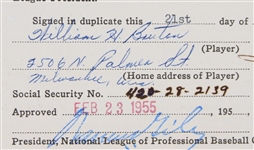 Signed in duplicate this 21st day of
William H Bruton
(Player)
2506 N. Palmer St
Milwaukee, Wis
(Home address of Player)
Social Security No. 420-28-2139
Approved FEB 23 1955 195
President, National League of Professional Baseball C